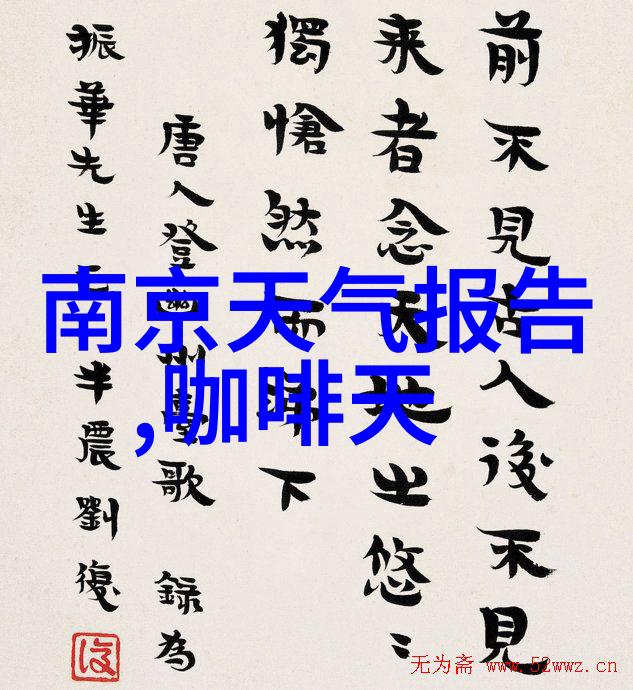 南京天气报告
,咖啡天
前不見古人後不見
来者念天地之悠〻
獨愴然而涕下
唐人登幽州臺歌 錄為
振華先生 半農劉復
復
无为斋 www.52wwz.cn